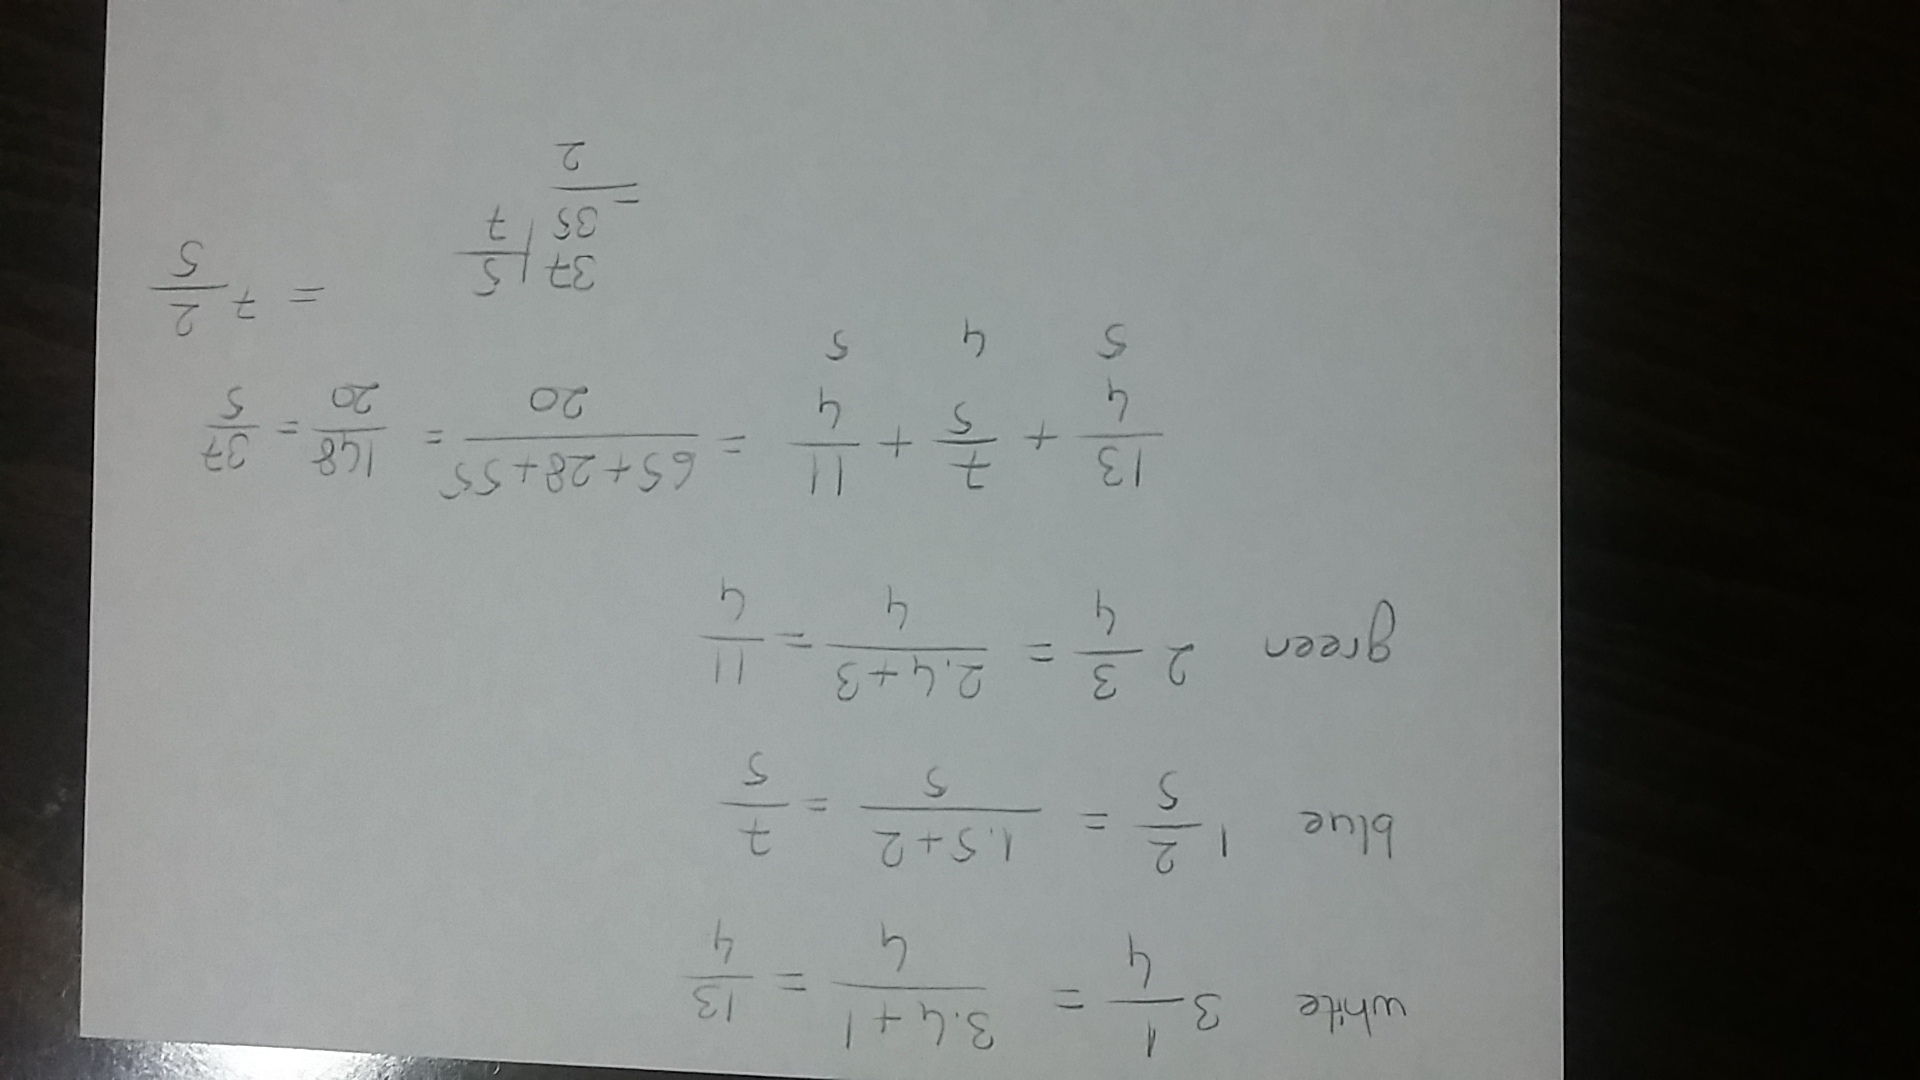 white 3 1/4 = 3.4+1/4 = 13/4
blue 1 2/5 = 1.5+2/5 = 7/5
green 2 3/4 = 2.4+3/4 = 11/4
13/4 + 7/5 + 11/4 = 65+28+55/20 = 148/20 = 37/5
5 4 5
= 7 2/5
37 | 5
35 | 7
=
2